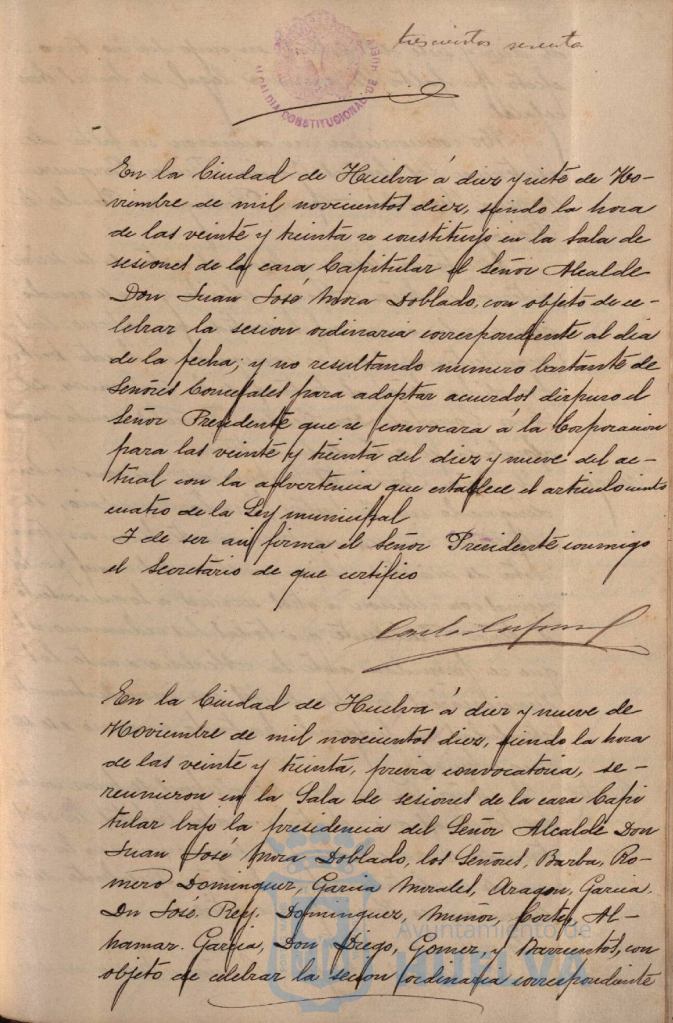 trescientos sesenta
ALCALDIA CONSTITUCIONAL DE HUELVA
En la Ciudad de Huelva á diez y siete de No-
viembre de mil novecientos diez, siendo la hora
de las veinte y treinta se constituyó en la Sala de
sesiones de la casa Capitular el Señor Alcalde
Don Juan José Mora Doblado, con objeto de ce-
lebrar la sesion ordinaria correspondiente al dia
de la fecha; y no resultando numero bastante de
Señores Concejales para adoptar acuerdos dispuso el
Señor Presidente que se convocara á la Corporacion
para las veinte y treinta del diez y nueve del ac-
tual con la advertencia que establece el articulo ciento
cuatro de la Ley municipal
Y de ser asi firma el Señor Presidente conmigo
el Secretario de que certifico
En la Ciudad de Huelva á diez y nueve de
Noviembre de mil novecientos diez, siendo la hora
de las veinte y treinta, previa convocatoria, se-
reunieron en la Sala de sesiones de la casa Capi
tular bajo la presidencia del Señor Alcalde Don
Juan José Mora Doblado, los Señores, Barba, Ro-
mero Dominguez, Garcia Morales, Aragon, Garcia.
Dn José. Rey. Dominguez, Muñoz, Cortes, Al-
hamar. Garcia, Don Diego, Gomez, y Barrientos, con
objeto de celebrar la secion ordinaria correspondiente
Ayuntamiento de
HUELVA